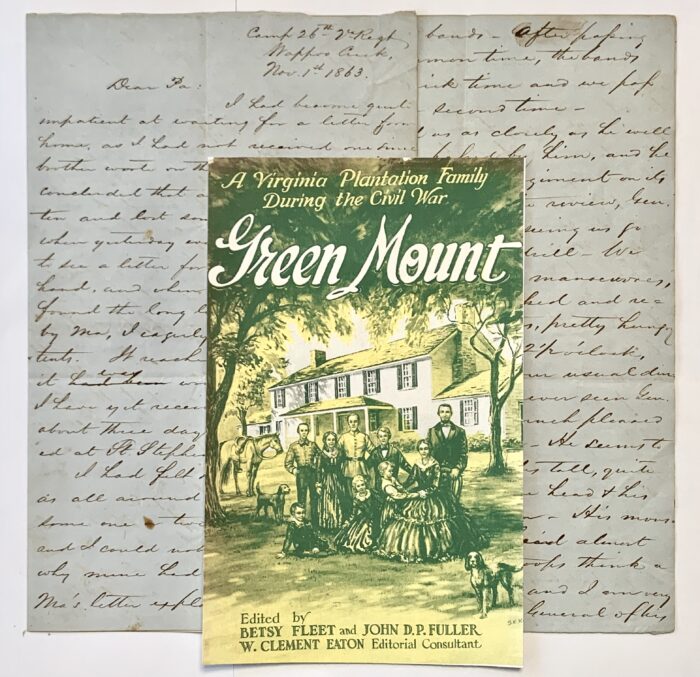 Camp 26th Va Regt
Wappoo Creek,
Nov. 1st 1863.
Dear Pa:
I had become quite
impatient at waiting for a letter from
home, as I had not received one since
brother wrote
concluded that
ten and lost
when yesterday
to see a letter
head, and
found the long
by Ma, I eagerly
tents. It
it
I have yet
about the day
ed at St
I had
as all around
some one
and I could not
why mine had
Ma's letter
bands - After passing
time, the bands
time and we
second time -
us as closely as he well
him, and he
on its
review, Gen.
seeing us go
drill - We
manoeuvres,
and
pretty hungry
o'clock,
usual
ever seen Gen.
pleased
He seems to
tall, quite
head & his
His
almost
think a
and I am very
General of his
A Virginia Plantation Family
During the Civil War
Green Mount
Edited by
BETSY FLEET and JOHN D.P. FULLER
W. CLEMENT EATON Editorial Consultant